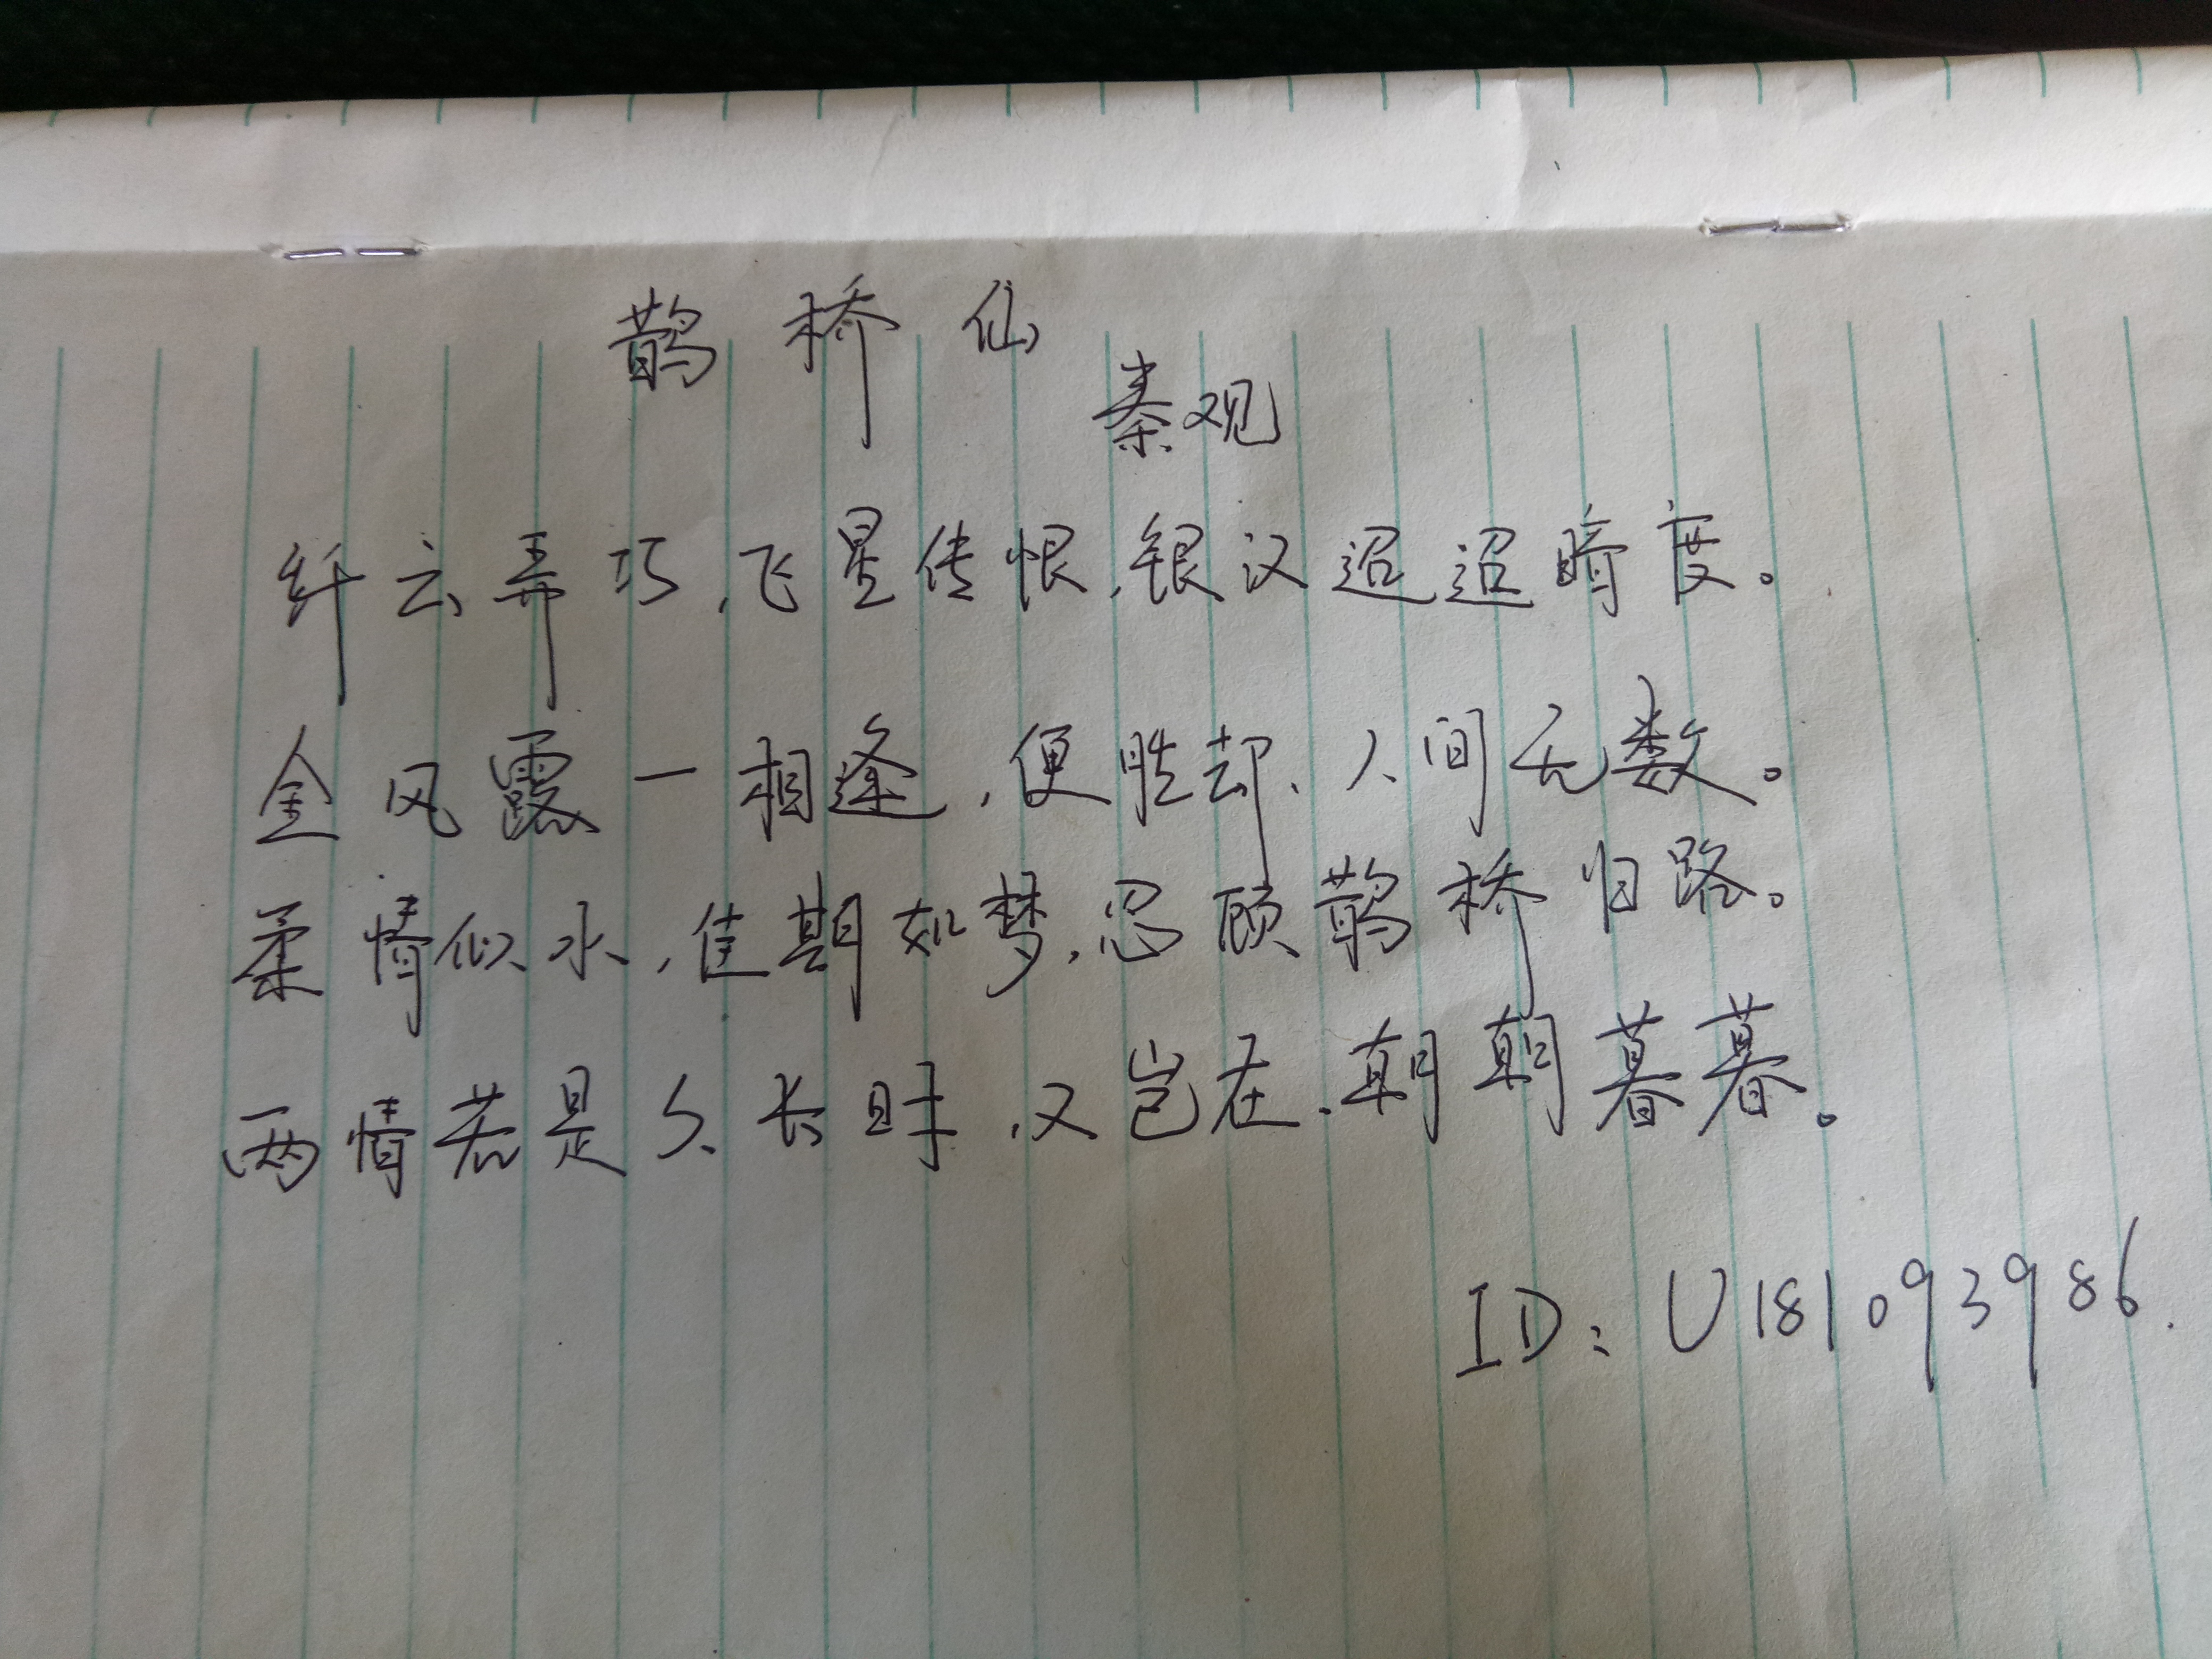 鹊桥仙
秦观
纤云弄巧,飞星传恨,银汉迢迢暗度。
金风露一相逢,便胜却、人间无数。
柔情似水,佳期如梦,忍顾鹊桥归路。
两情若是久长时,又岂在、朝朝暮暮。
ID:U181093986.